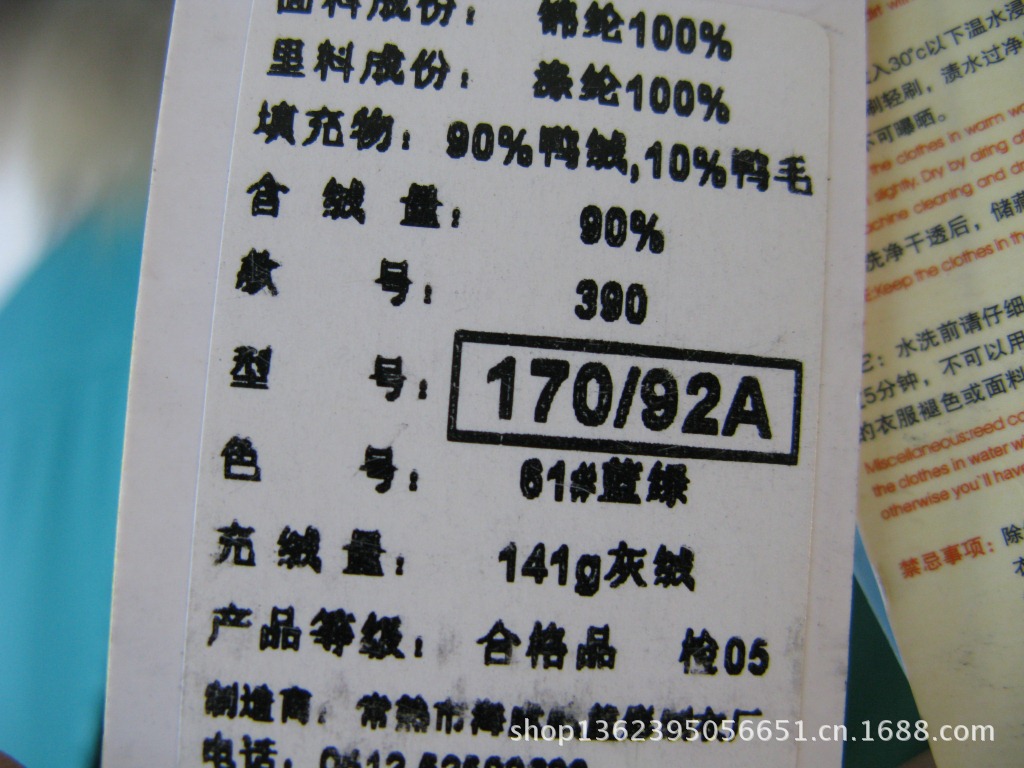 面料成份： 锦纶100%
里料成份： 涤纶100%
填充物： 90%鸭绒,10%鸭毛
含 绒 量： 90%
款 号： 390
型 号： 170/92A
色 号： 61#蓝绿
充 绒 量： 141g灰绒
产品等级： 合格品 检05
制造商： 常熟市海
电话：
入30°c以下温水浸
刷轻刷，渍水过净
不可曝晒。
the clothes in warm wa
slightly. Dry by airing
machine cleaning and
洗净干透后，储藏
Keep the clothes in the
：水洗前请仔细
15分钟，不可以用
的衣服褪色或面料
Miscellaneous:need
the clothes in water
otherwise you`ll have
禁忌事项：除
shop1362395056651.cn.1688.com